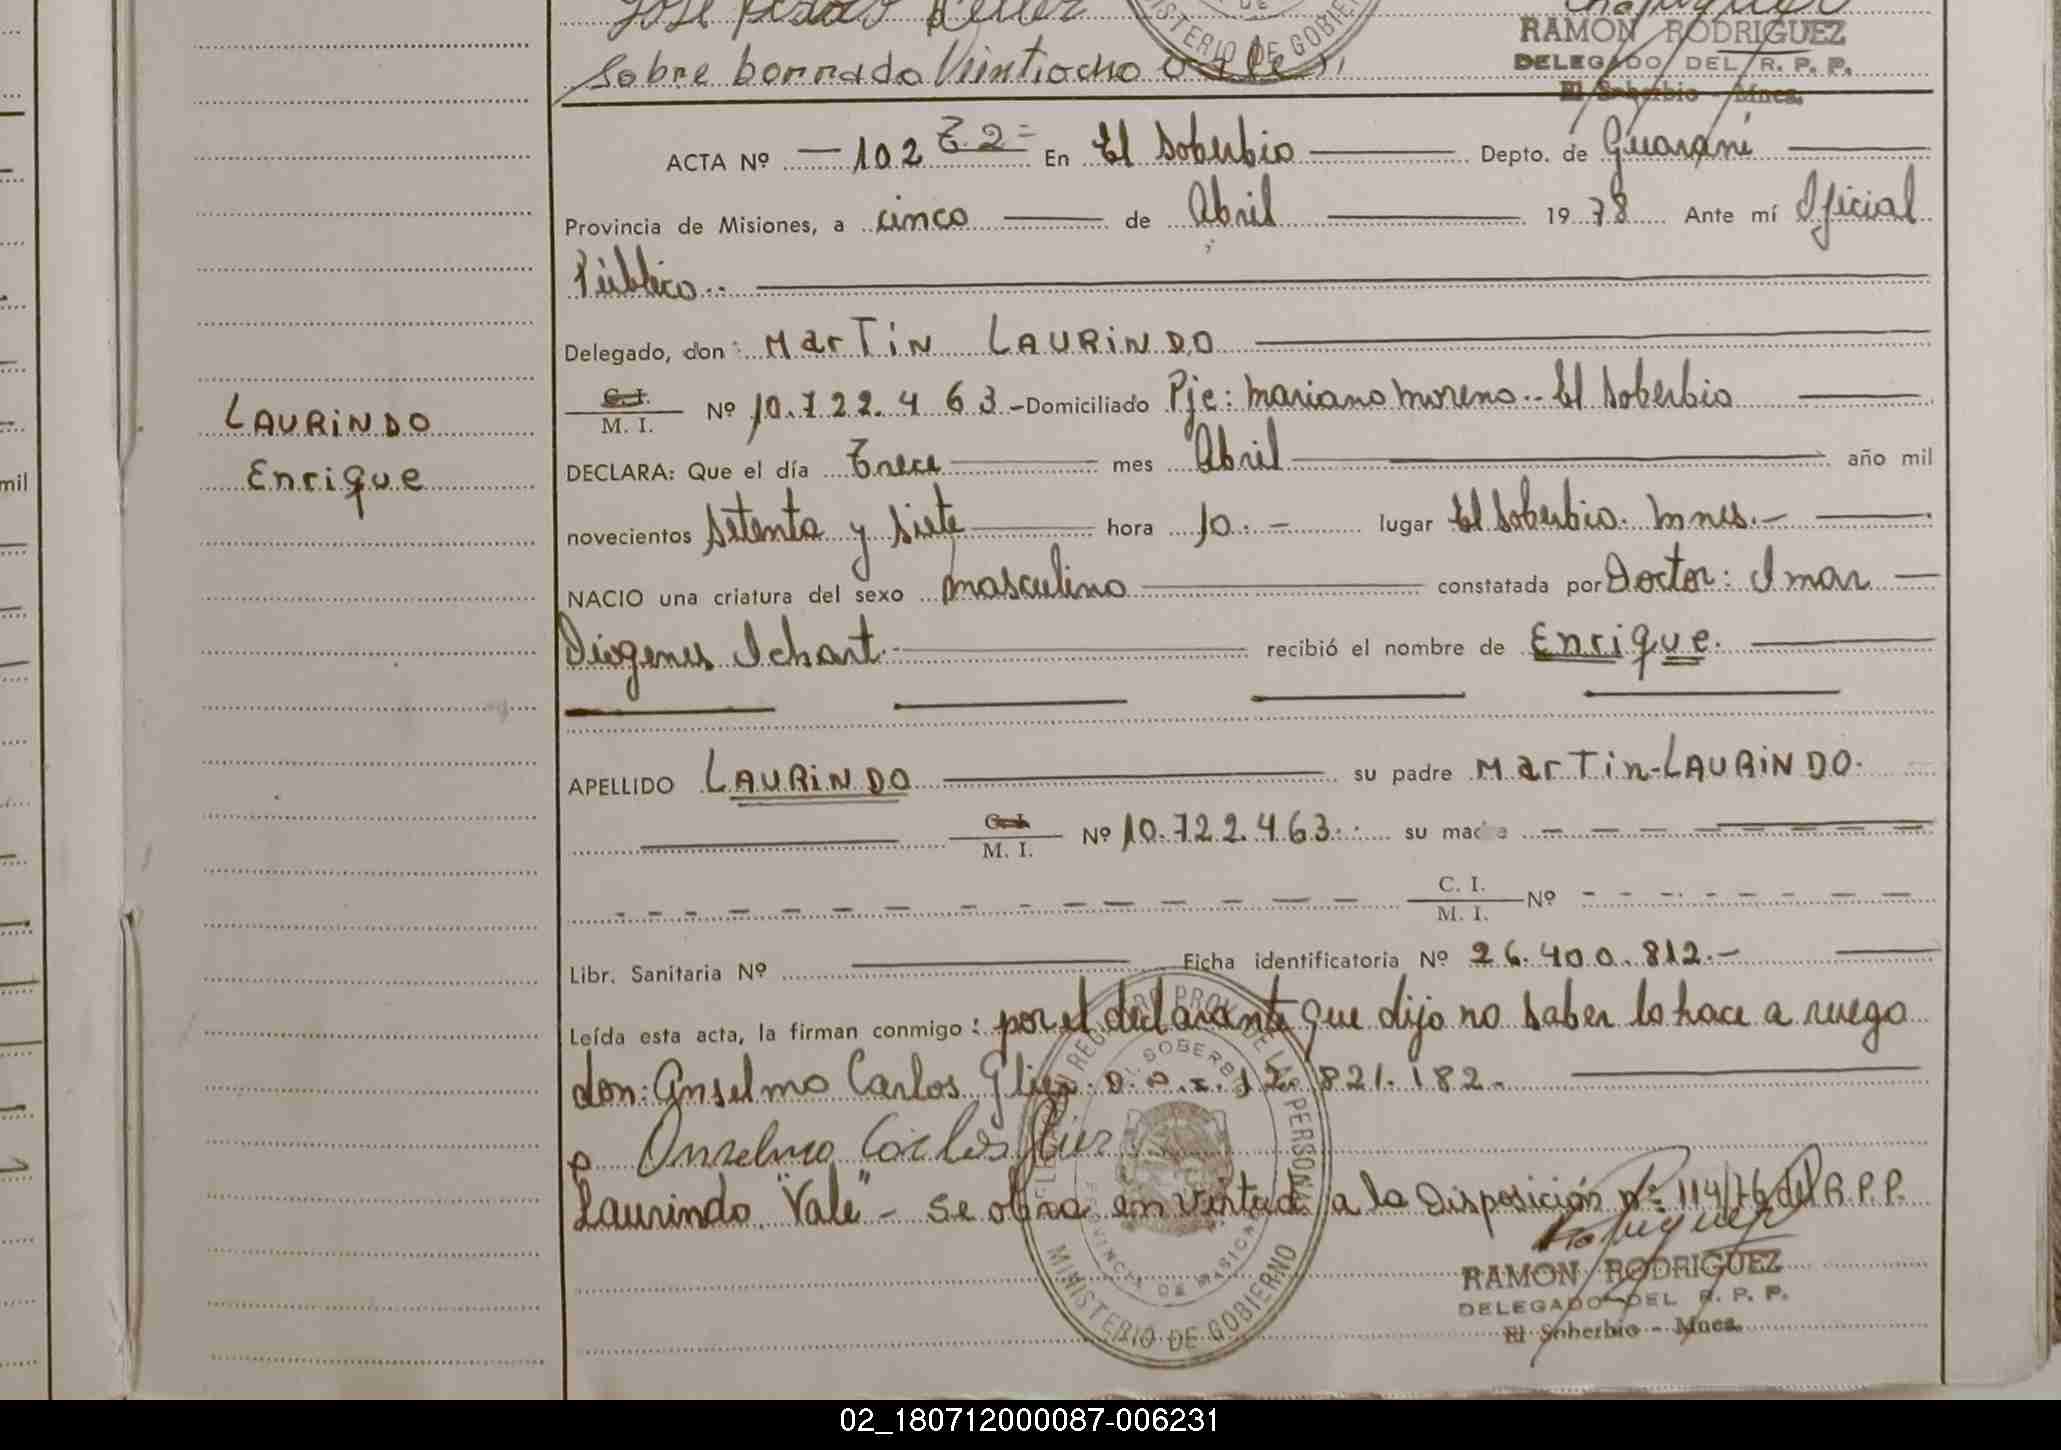 José Pedro
Sobre borrado Veintiocho Vale
MINISTERIO DE GOBIERNO
RAMON RODRIGUEZ
DELEGADO DEL R. P. P.
El Soberbio - Mnes.
ACTA Nº — 102 T. 2 = En El Soberbio Depto. de Guaraní
Provincia de Misiones, a cinco de Abril 19 78 Ante mí Oficial
Público..
Delegado, don: Martin LAURINDO
C. I.
M. I. Nº 10.722.463.- Domiciliado Pje: Mariano Moreno.. El Soberbio
LAURINDO
Enrique
DECLARA: Que el día Trece mes Abril año mil
novecientos setenta y siete hora 10. - lugar El Soberbio. Mnes.-
NACIO una criatura del sexo masculino constatada por Doctor: Imar
Diógenes Ichart. recibió el nombre de Enrique.
APELLIDO LAURINDO su padre Martin-LAURINDO.
C. I.
M. I. Nº 10.722.463. su madre
C. I.
M. I. Nº
Libr. Sanitaria Nº Ficha identificatoria Nº 26.400.812.-
Leída esta acta, la firman conmigo: por el declarante que dijo no saber lo hace a ruego
don: Anselmo Carlos Glier. D.N.I. 12.821.182.
Anselmo Carlos Glier
Laurindo "Vale" - se obra en virtud a la Disposición Nº 114/76 del R.P.P.
EL SOBERBIO
PROVINCIA DE MISIONES
MINISTERIO DE GOBIERNO
RAMON RODRIGUEZ
DELEGADO DEL R. P. P.
El Soberbio - Mnes.
mil
02_180712000087-006231